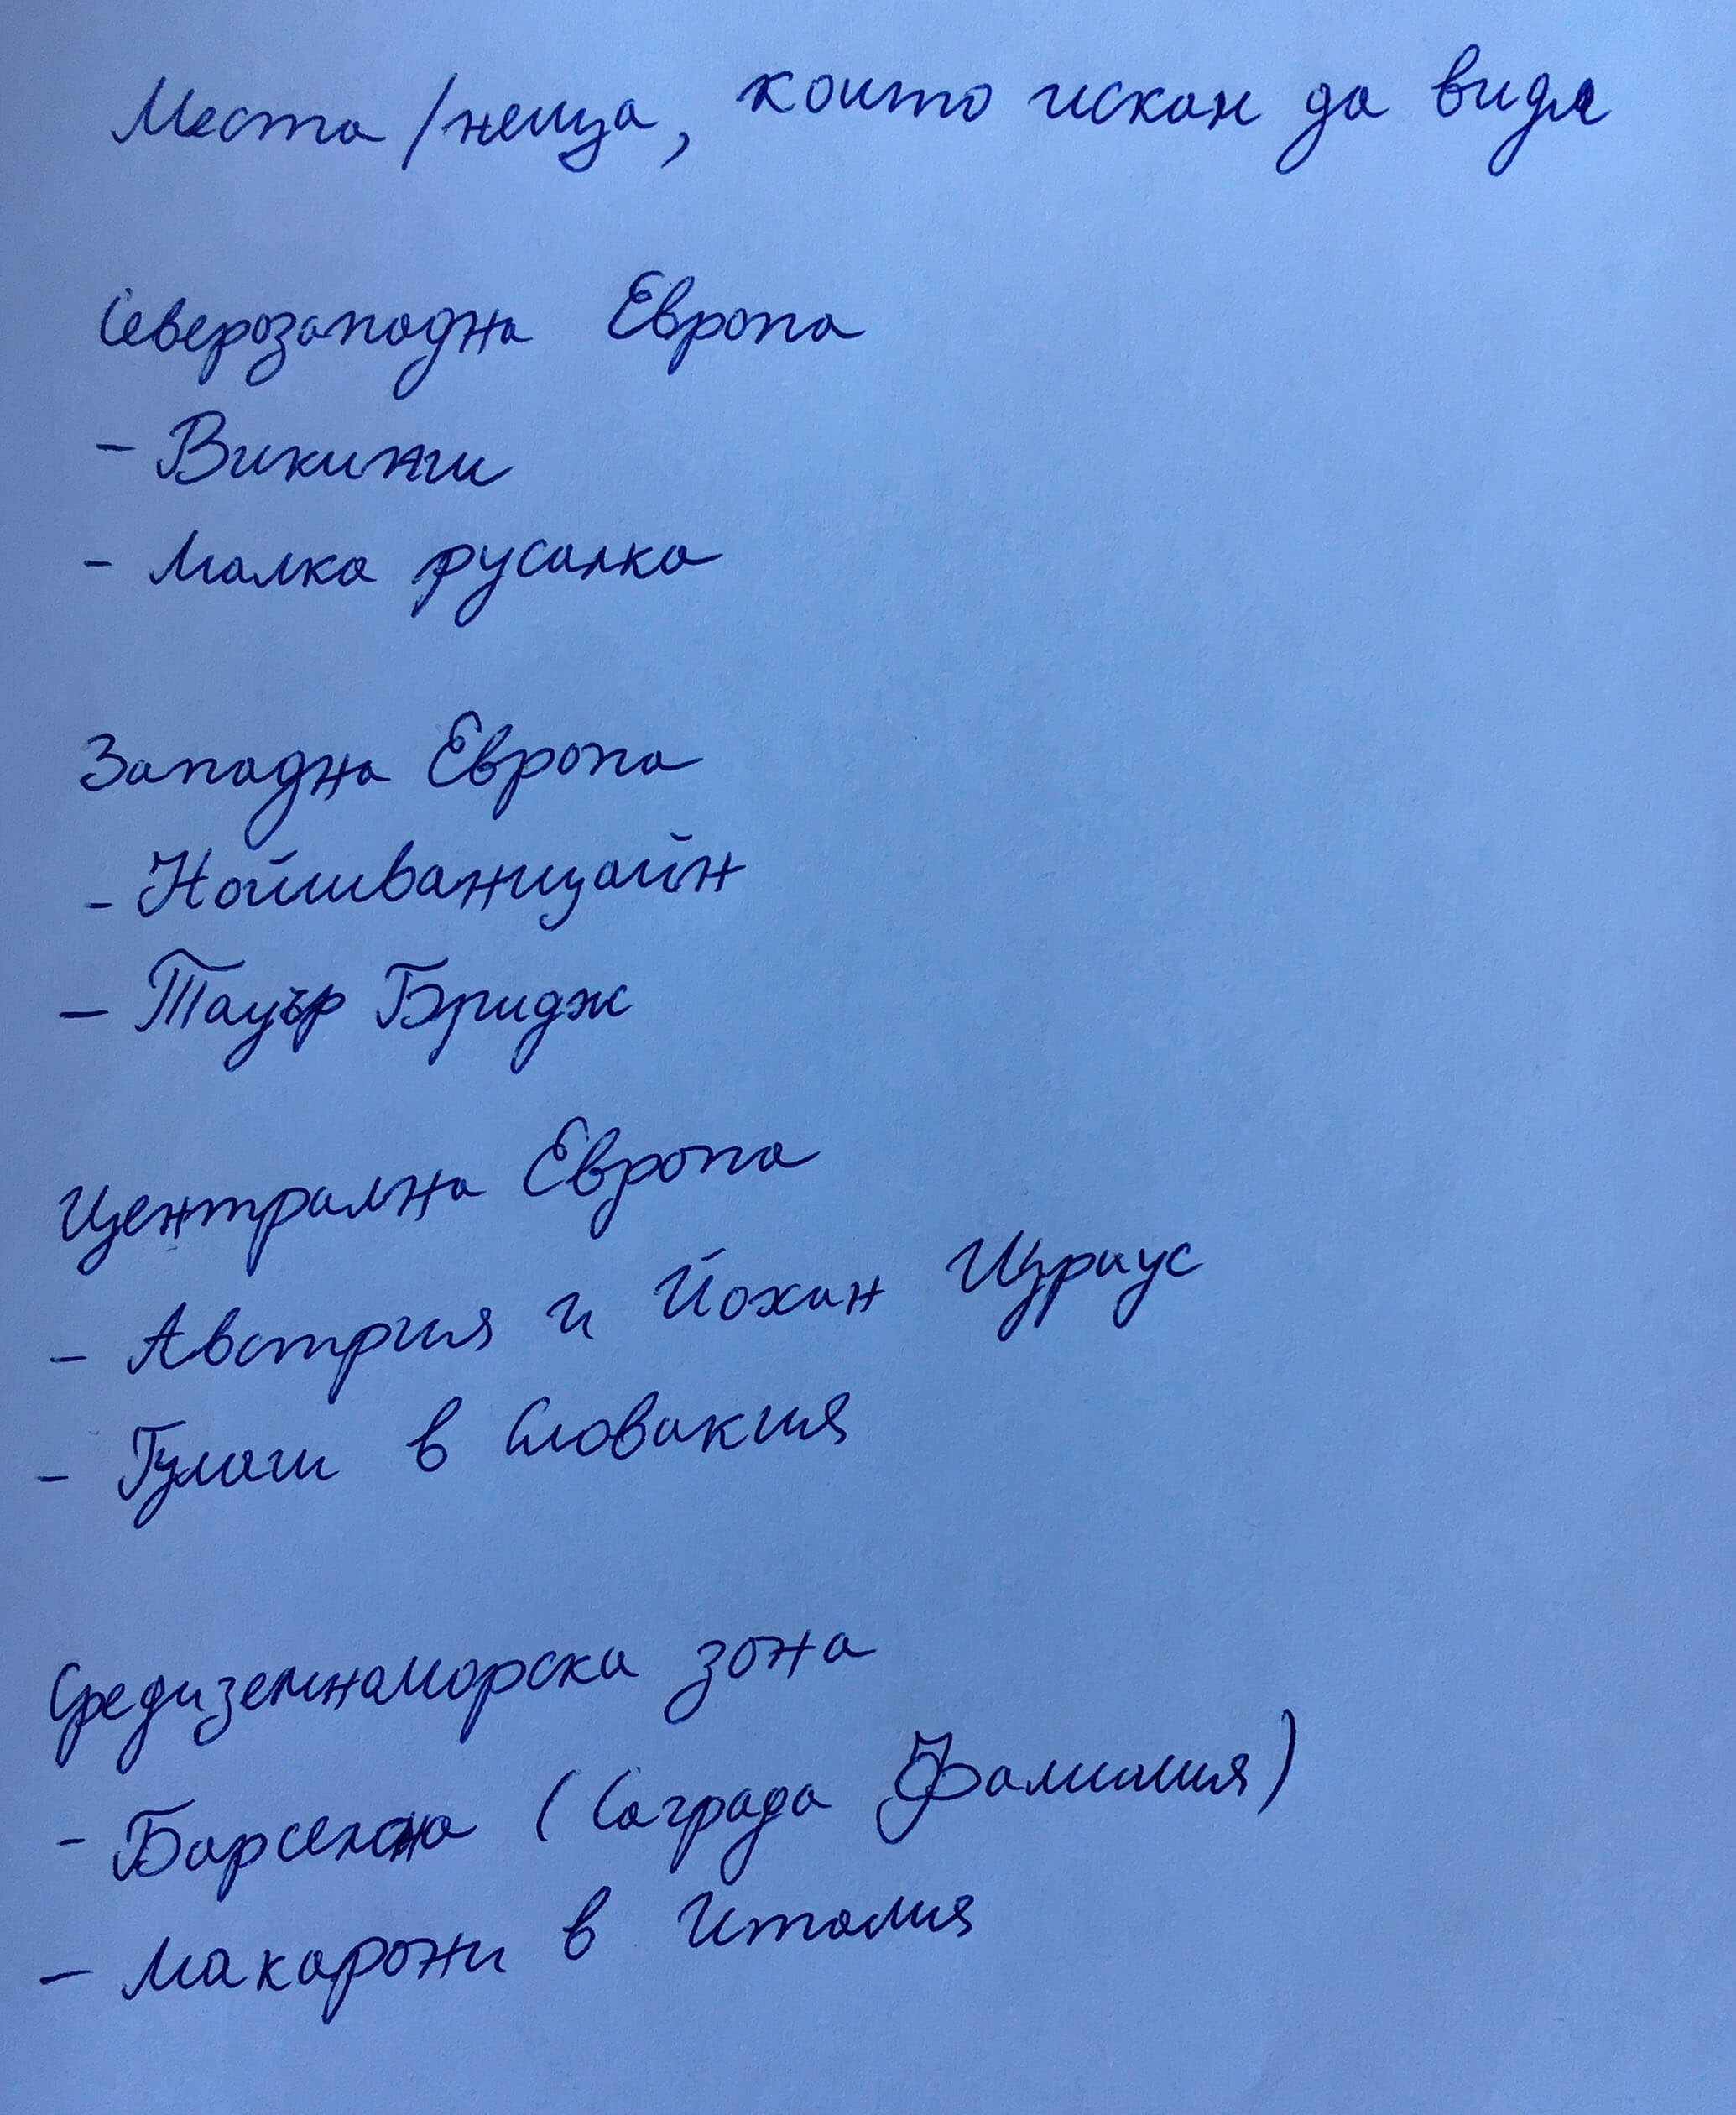 Места/неща, които искам да видя
Северозападна Европа
- Викинги
- Малка русалка
Западна Европа
- Нойшванщайн
- Тауър Бридж
Централна Европа
- Австрия и Йохан Щраус
- Гулаш в Словакия
Средиземноморска зона
- Барселона (Саграда Фамилия)
- Макарони в Италия